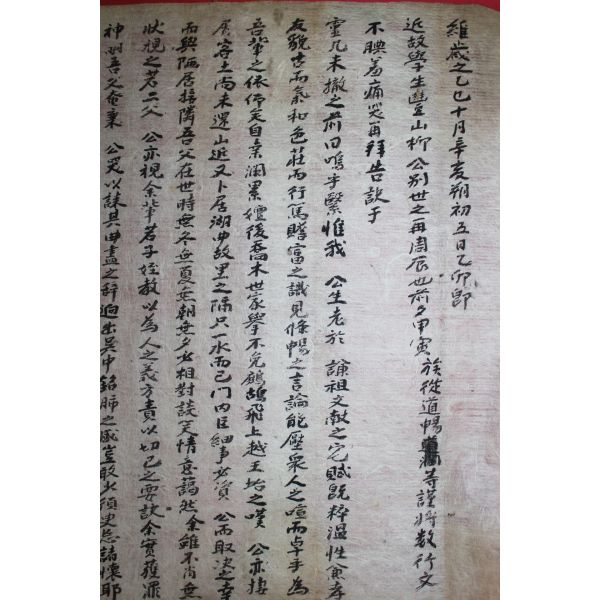 維歲之乙巳十月辛亥朔初五日乙卯卽
近故學生豊山柳 公別世之再周辰也前夕甲寅族從道暢等謹將數行文
不腆羞痛哭再拜告訣于
靈几未撤之前曰嗚乎繄惟我 公生老於 謙祖文敬之宅賦旣粹溫性又孝
友貌古而氣和色莊而行篤贍富之識見條暢之言論能壓衆人之喧而卓乎爲
吾輩之依仰定自桑瀾累嬗後喬木世家擧不免鷓鴣飛上越王坮之嘆 公亦捿
屑客土尚未還山近又卜居湖曲故里之隔只一水而已門內巨細事必資 公而取決之幸
而與陋居接隣吾父在世時無冬無夏無朝無夕必相對談笑情意藹然余雖不肖無
狀視之若二父 公亦視余輩若子姪敎以爲人之義方責以切己之要訣余實獲罪
神明吾父奄棄 公哭以誄其曲盡之辭逈出吳中銘肺之感豈敢少須臾忘諸懷耶